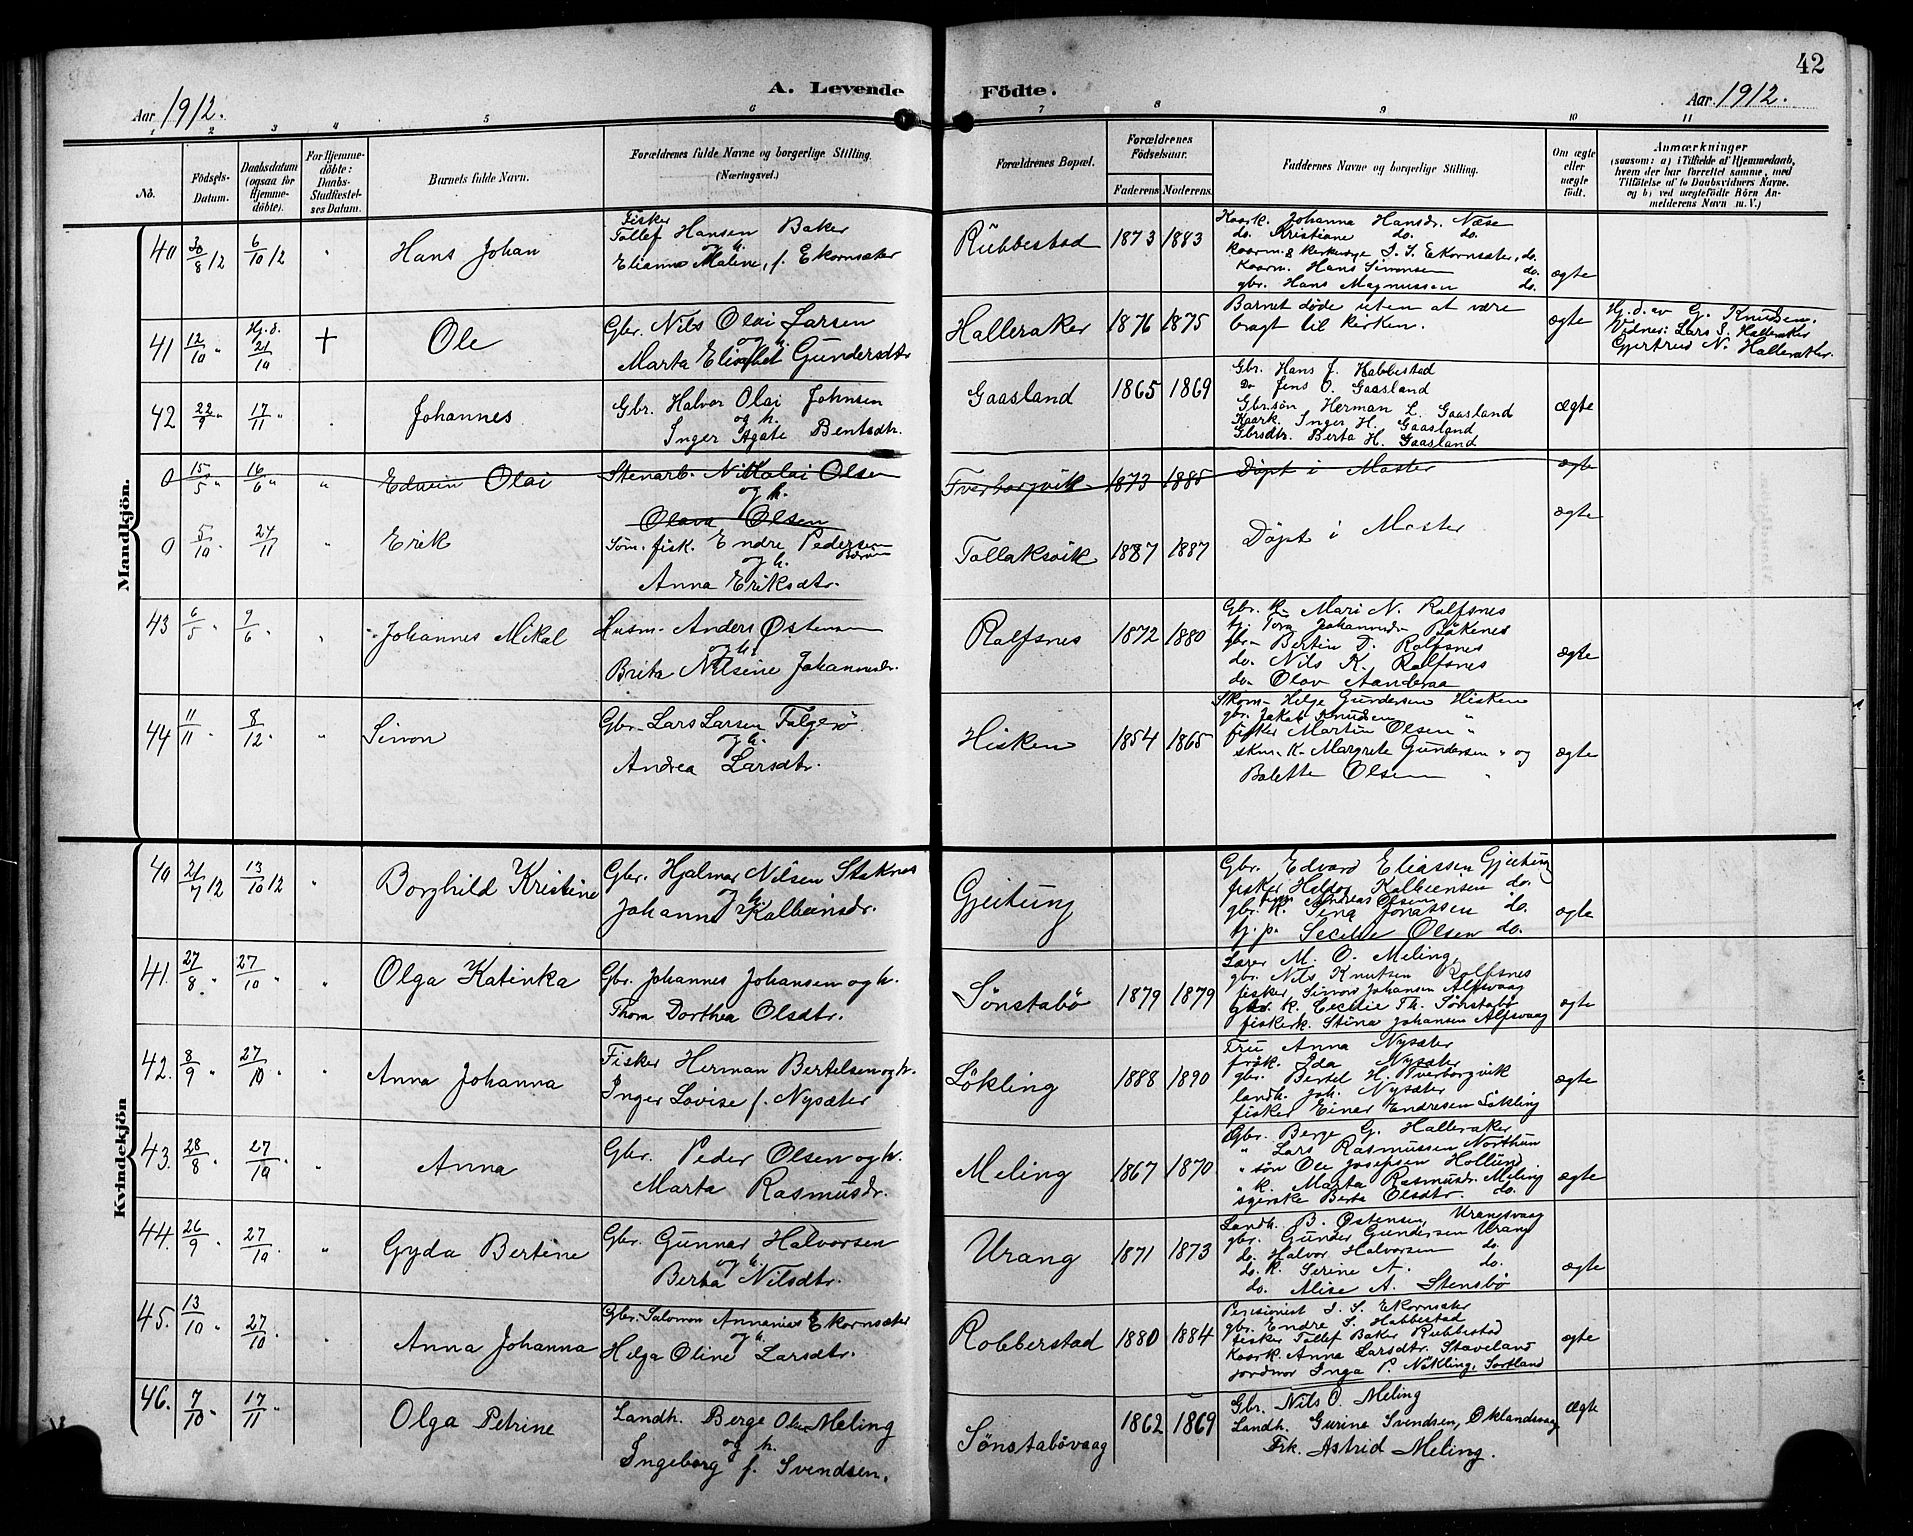 42
A. Levende Födte.
Aar 1912.
Aar 1912.
1 2 3 4 5 6 7 8 9 10 11
No.
Födsels-Datum.
Daabsdatum (ogsaa for Hjemme-döbte).
For Hjemme-döbte: Daabs-Stadfæstel-ses Datum.
Barnets fulde Navn.
Forældrenes fulde Navne og borgerlige Stilling. (Næringsvei.)
Forældrenes Bopæl.
Forældrenes Födselsaar.
Faderens Moderens.
Faddernes Navne og borgerlige Stilling.
Om ægte eller uægte födt.
Anmærkninger
(saasom: a) i Tilfælde af Hjemmedaab, hvem der har forrettet samme, med Tilföielse af to Daabsvidners Navne. og b) ved uægtefödte Börn Anmelderens Navn m. V.)
Mandkjön.
40 30/8 12 6/10 12 " Hans Johan
Fisker
Tollef Hansen Baker
og h.
Elianna Maline, f. Ekornsæter
Rubbestad 1873 1883
Kaark. Johanna Hansdr. Næse
do. Kristiane do. do.
Kaarm. & kirkeverge I. S. Ekornsæter, do.
Kaarm. Hans Simonsen do.
gbr. Hans Magnussen do.
ægte
41 12/10 " Hj.d. 21/10 + Ole
Gbr. Nils Olai Larsen
og h.
Marta Elisabet Gundersdtr
Halleraker 1876 1875
Barnet døde uten at være
bragt til kirken.
ægte
Hj.d. av G. Knudsen.
Vidner: Lars S. Halleraker
Gjertrud N. Halleraker.
42 22/9 " 17/11 " Johannes
Gbr. Halvor Olai Johnsen
og h.
Inger Agate Bentsdtr.
Gaasland 1865 1869
Gbr. Hans J. Habbestad
Do Jens O. Gaasland
Gbr.søn Herman L. Gaasland
Kaark. Inger H. Gaasland
Gbrsdtr. Berta H. Gaasland
ægte
0 15/5 16/6 " " Edwin Olai
Stenarb. Nikolai Olsen
og h.
Olava Olsen
Tverborgvik 1873 1885 Døpt i Moster ægte
0 5/10 " 24/11 " Erik
Søm. fisk. Endre Pedersen
og h.
Anna Eriksdtr.
Tollaksvik 1887 1887 Døpt i Moster ægte
43 6/5 " 9/6 " Johannes Mikal
Husm. Anders Østensen
og h.
Brita Nilsine Johannesdr.
Rolfsnes 1872 1880
Gbr. k. Mari N. Rolfsnes
tj. Tora Johannesdr. Bökenes
gbr. Bertin D. Rolfsnes
do. Nils K. Rolfsnes
do. Olav Aanderaa
ægte
44 11/11 " 8/12 " " Simon
Gbr. Lars Larsen Folgerø
og h.
Andrea Larsdtr.
Hisken 1854 1865
Skom. Helge Gundersen Hisken
gbr. Jakob Knudsen "
fisker Martin Olsen "
skm. k. Margrete Gundersen " og
Bolette Olsen "
ægte
Kvindekjön
40 21/7 12 13/10 12 " Borghild Kristine
Gbr. Hjalmar Nilsen Stoknes
og h.
Johanna Kolbeinsdr.
Gjeitung
Gbr. Edvard Eliassen Gjeitung
fisker Heldor Kolbeinsen do.
Andreas Olsen
gbr. k. Sina Jonassen do.
tj. p. Secelie Olsen do.
ægte
41. 27/8 " 27/10 " " Olga Katinka
Gbr. Johannes Johansen og h.
Thora Dorthea Olsdtr.
Sønstabø 1879 1879
Lærer M. O. Meling,
gbr. Nils Knutsen Rolfsnes
fisker Simon Johansen Alfsvaag
gbr. k. Cecilie Th. Sønstabø
fiskerk. Stina Johansen Alfsvaag
ægte
42. 8/9 " 27/10 " " Anna Johanna
Fisker Herman Bertelsen og h.
Inger Lovise f. Nysæter
Løkling 1888 1890
Fru Anna Nysæter
frøk. Ida Nysæter
gbr. Bertel H. Tverborgvik
landh. Joh. Nysæter
fisker Einar Endresen Løkling
ægte
43. 28/8 " 27/10 " " Anna
Gbr. Peder Olsen og h.
Marta Rasmusdr.
Meling 1867 1870
Gbr. Berge G. Halleraker
" Lars Rasmussen Northun
" søn Ole Josepsen Hollund
" k. Marta Rasmusdr. Meling
syerske Berta Olsdtr. do.
ægte
44. 26/9 " 27/10 " " Gyda Bertine
Gbr. Gunnar Halvorsen
og h.
Berta Nilsdtr.
Urang 1871 1873
Landh. B. Østensen, Urangsvaag
gbr. Gunder Gundersen Urang
do. Halvor Halvorsen do.
do. k. Serine A. do.
do. Alise A. Stensbø
ægte
45. 13/10 " 27/10 " Anna Johanna
Gbr. Salomon Annanias Ekornsæter
og h.
Helga Oline Larsdtr.
Robberstad 1880 1884
Pensionist I. S. Ekornsæter
gbr. Endre S. Habbestad
fisker Tollef Baker Rubbestad
Kaark. Anna Larsdtr. Staveland
jordmor Inga P. Nökling, Sortland
ægte
46. 7/10 " 17/11 " Olga Petrine
Landh. Berge Olsen Meling
og h.
Ingeborg f. Svendsen.
Sønstabøvaag 1862 1869
Gbr. Nils O. Meling
Landh. Gurine Svendsen, Oklandsvaag
Frk. Astrid Meling.
ægte